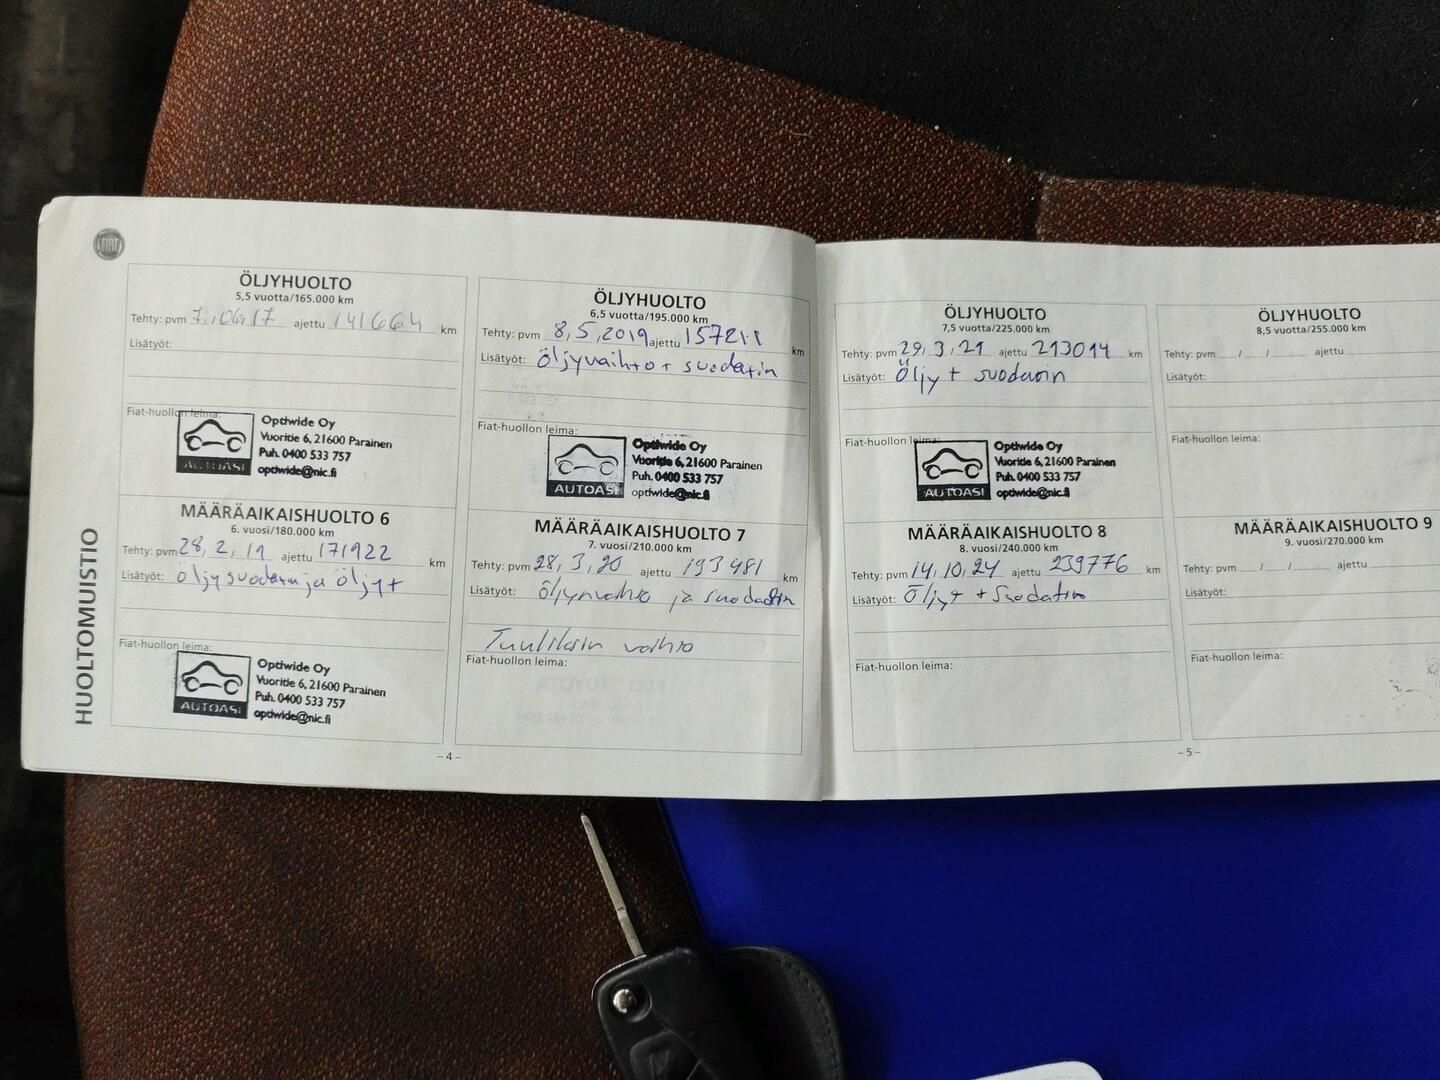 FIAT
HUOLTOMUISTIO
ÖLJYHUOLTO
5,5 vuotta/165.000 km
Tehty: pvm 7.06.17 ajettu 141664 km
Lisätyöt:
Fiat-huollon leima:
AUTOASI
Optiwide Oy
Vuoritie 6, 21600 Parainen
Puh. 0400 533 757
optiwide@nic.fi
MÄÄRÄAIKAISHUOLTO 6
6. vuosi/180.000 km
Tehty: pvm 28, 2, 19 ajettu 171922 km
Lisätyöt: öljysuodatin ja öljyt
Fiat-huollon leima:
AUTOASI
Optiwide Oy
Vuoritie 6, 21600 Parainen
Puh. 0400 533 757
optiwide@nic.fi
ÖLJYHUOLTO
6,5 vuotta/195.000 km
Tehty: pvm 8,5,2019 ajettu km
Lisätyöt: öljyvaihto + suodatin
Fiat-huollon leima:
AUTOASI
Optiwide Oy
Vuoritie 6, 21600 Parainen
Puh. 0400 533 757
optiwide@nic.fi
MÄÄRÄAIKAISHUOLTO 7
7. vuosi/210.000 km
Tehty: pvm 28, 3, 20 ajettu 193481 km
Lisätyöt: ja suodatin
Tuulilasin vaihto
Fiat-huollon leima:
- 4 -
ÖLJYHUOLTO
7,5 vuotta/225.000 km
Tehty: pvm 29,3,21 ajettu 213014 km
Lisätyöt: Öljy + suodatin
Fiat-huollon leima:
AUTOASI
Optiwide Oy
Vuoritie 6, 21600 Parainen
Puh. 0400 533 757
optiwide@nic.fi
MÄÄRÄAIKAISHUOLTO 8
8. vuosi/240.000 km
Tehty: pvm 14,10,24 ajettu 239776 km
Lisätyöt: Öljyt + Suodatin
Fiat-huollon leima:
ÖLJYHUOLTO
8,5 vuotta/255.000 km
Tehty: pvm / / ajettu
Lisätyöt:
Fiat-huollon leima:
MÄÄRÄAIKAISHUOLTO 9
9. vuosi/270.000 km
Tehty: pvm / / ajettu
Lisätyöt:
Fiat-huollon leima:
- 5 -